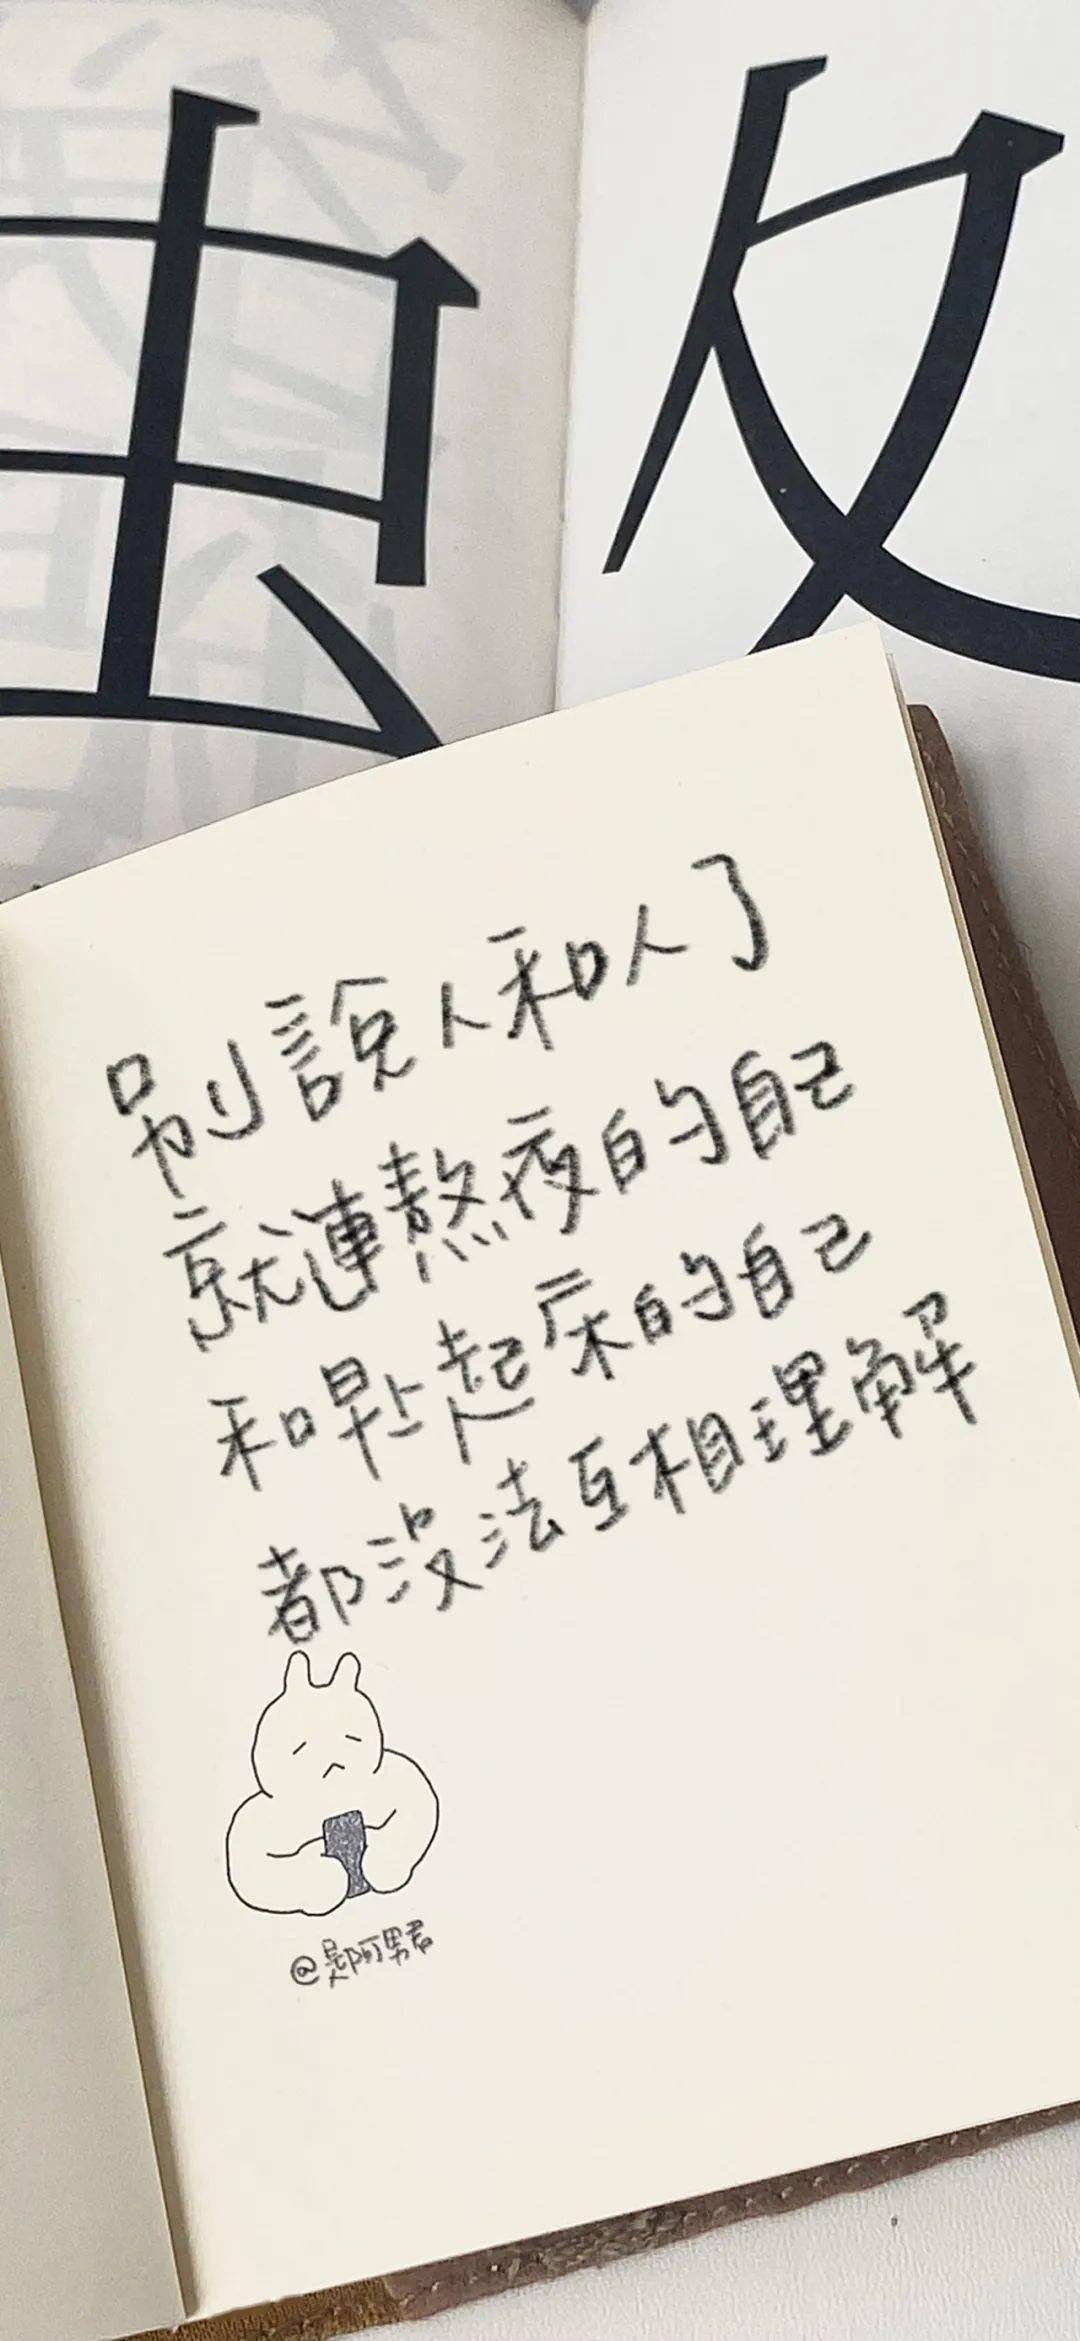 別說人和人了
就連熬夜的自己
和早上起床的自己
都沒法互相理解
@是阿男君